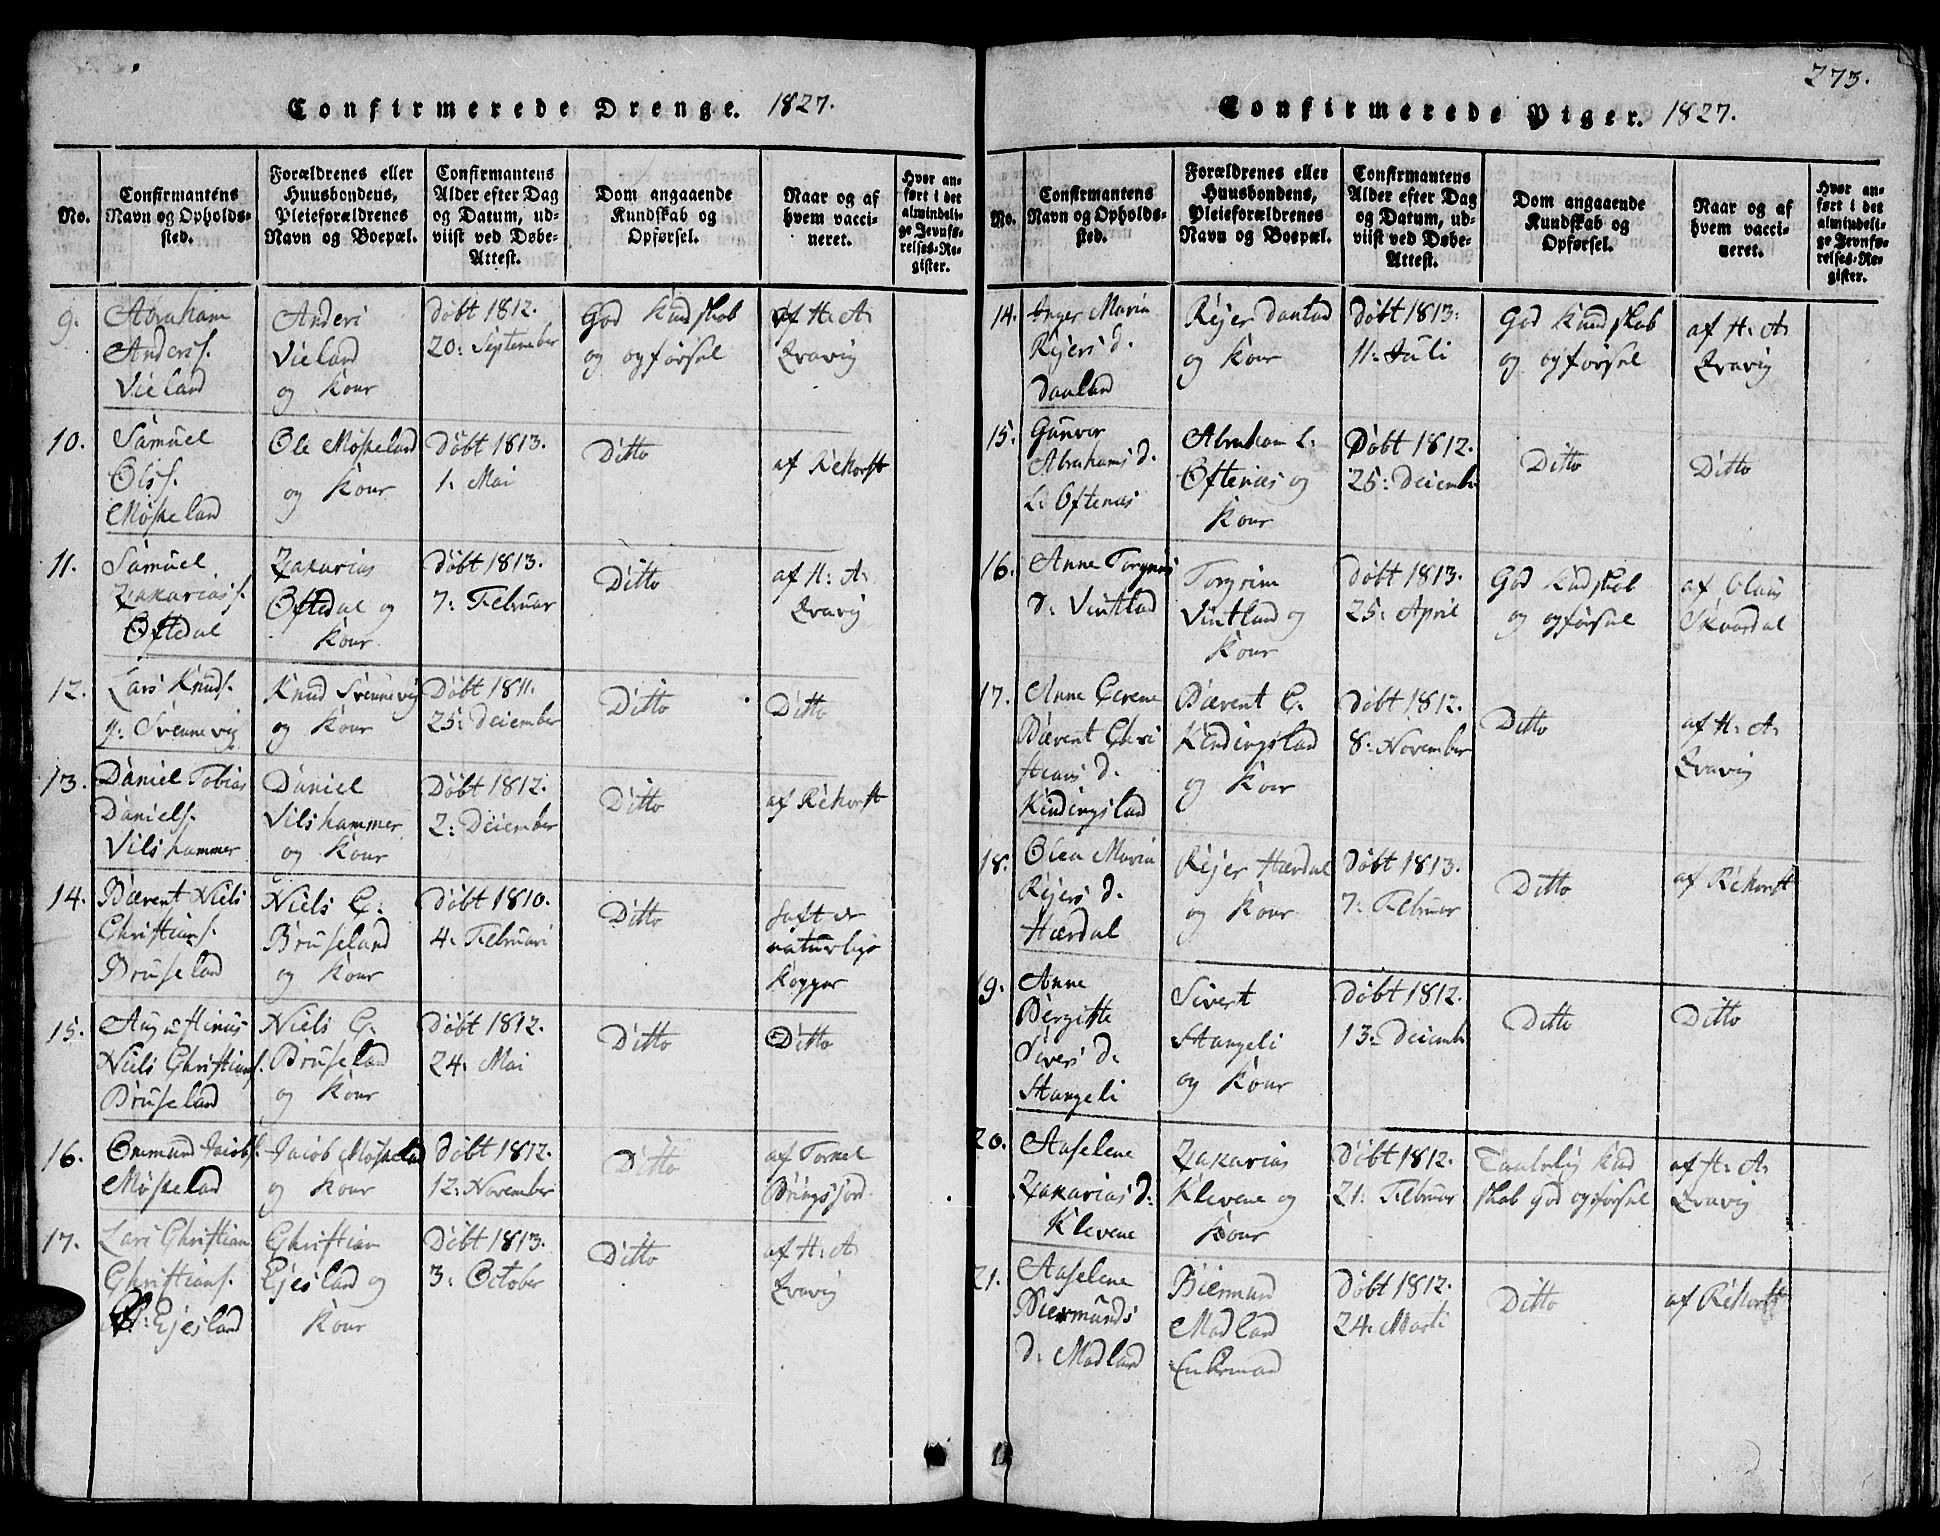 Confirmerede Drenge. 1827.
No.
Confirmantens
Navn og Opholds-
sted.
Forældrenes eller
Huusbondens,
Pleieforældrenes
Navn og Boepæl.
Confirmantens
Alder efter Dag
og Datum, ud-
viist ved Døbe-
Attest.
Dom angaaende
Kundskab og
Opførsel.
Naar og af
hvem vacci-
neret.
Hvor an-
ført i det
almindeli-
ge Jevnfø-
relses-Re-
gister.
9.
Abraham
Anders.
Vieland
Anders
Vieland
og Kone
Døbt 1812.
20: September
God Kundskab
og opførsel
af H: A:
Eravig
10.
Samuel
Ols.
Møskeland
Ole Møskeland
og Kone
Døbt 1813.
1. Mai
Ditto
af Rehorst
11.
Samuel
Zakarias s.
Øftedal
Zakarias
Øftedal og
Kone
Døbt 1813.
7: Februar
Ditto
af H: A:
Eravig
12.
Lars Knuds.
y: Svennevig
Knud Svennevig
og Kone
Døbt 1811.
25: December
Ditto
Ditto
13.
Daniel Tobias
Daniels.
Vilshammer
Daniel
Vilshammer
og Kone
Døbt 1812.
2: December
Ditto
af Rehorst
14.
Bærent Niels
Christians.
Bruseland
Niels C:
Bruseland
og Kone
Døbt 1810.
4. Februari
Ditto
haft de
naturlige
Kopper
15.
Augustinus
Niels Christians.
Bruseland
Niels C.
Bruseland
og Kone
Døbt 1812.
24. Mai
Ditto
Ditto
16.
Ommund Jacobs.
Møskeland
Jacob Møskeland
og Kone
Døbt 1812.
12: November
Ditto
af Torkel
Bringsjord
17.
Lars Christian
Christians.
Ejesland
Christian
Ejesland og
Kone
Døbt 1813.
3: October
Ditto
af H: A:
Eravig
273.
Confirmerede Piger. 1827.
No.
Confirmantens
Navn og Opholds-
sted.
Forældrenes eller
Huusbondens,
Pleieforældrenes
Navn og Boepæl.
Confirmantens
Alder efter Dag
og Datum, ud-
viist ved Døbe-
Attest.
Dom angaaende
Kundskab og
Opførsel.
Naar og af
hvem vacci-
neret.
Hvor an-
ført i det
almindeli-
ge Jevnfø-
relses-Re-
gister.
14.
Inger Maria
Rejers d.
Dauland
Rejer Dauland
og Kone
Døbt 1813.
11: Juli
God Kundskab
og opførsel
af H: A:
Eravig
15.
Gunvor
Abrahams d.
L: Oftenæs
Abraham L.
Oftenæs og
Kone
Døbt 1812.
25: Decemb
Ditto
Ditto
16.
Anne Torgrims
d: Vintland
Torgrim
Vintland og
Kone
Døbt 1813.
25: April
God Kundskab
og opførsel
af Olaus
Skuardal
17.
Anne Cerene
Bærent Chri
stians d.
Kindingsland
Bærent C.
Kindingsland
og Kone
Døbt 1812.
8: November
Ditto
af H: A:
Eravig
18.
Olea Maria
Rejers d.
Hærdal
Rejer Hærdal
og Kone
Døbt 1813.
7: Februar
Ditto
af Rehorst
19.
Anne
Bergitte
Sivers d.
Stangeli
Sivert
Stangeli
og Kone
Døbt 1812.
13: Decemb
Ditto
Ditto
20.
Aaselene
Zakarias d:
Klevene
Zakarias
Klevene og
Kone
Døbt 1812.
21: Februar
Taalelig Kund
skab god opførsel
af H: A:
Eravig
21.
Aaselene
Biermunds
d: Modland
Biermund
Modland
Enkemand
Døbt 1812.
24. Marti
Ditto
af Rehorst